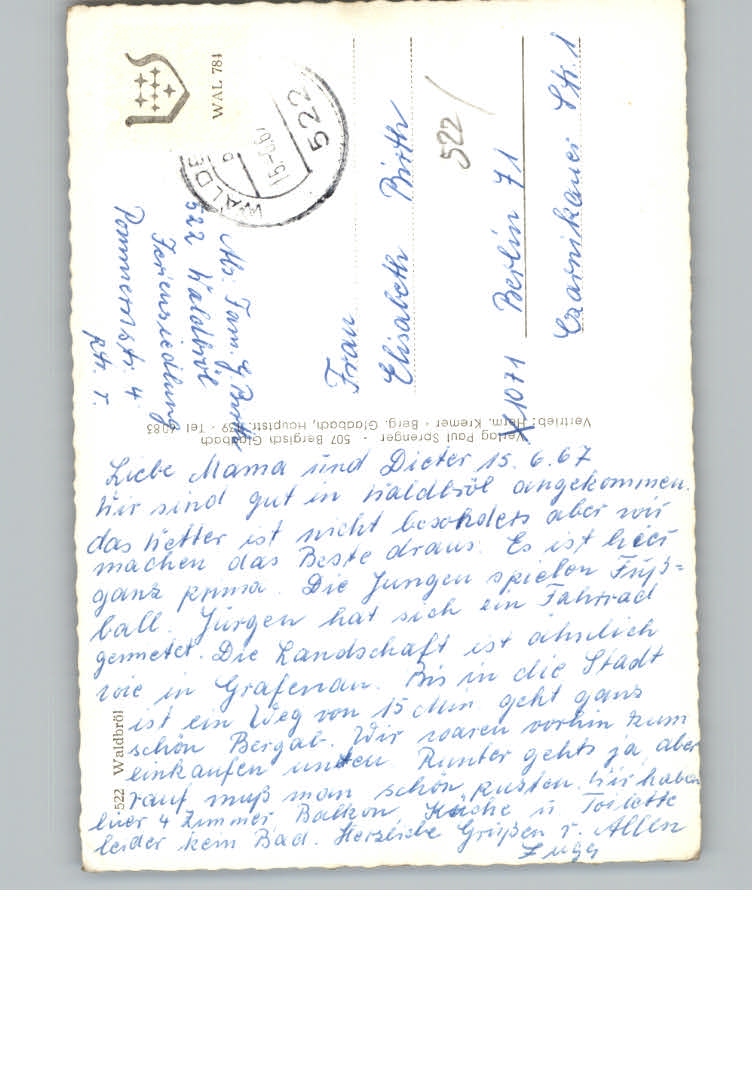 Liebe Mama und Dieter 15.6.67
Wir sind gut in Waldbröl angekommen.
das Wetter ist nicht besonders aber wir
machen das Beste draus. Es ist hier
ganz prima. Die Jungen spielen Fuß=
ball. Jürgen hat sich ein Fahrrad
gemietet. Die Landschaft ist ähnlich
wie in Grafenau. Bis in die Stadt
ist ein Weg von 15 Min. geht ganz
schön Bergab. Wir waren vorhin zum
einkaufen unten. Runter gehts ja, aber
rauf muß man schön pusten. Wir haben
hier 4 Zimmer, Balkon, Küche u Toilette
leider kein Bad. Herzliche Grüßen v. Allen
522 Waldbröl
Verlag Paul Sprenger - 507 Bergisch Gladbach
Vertrieb: Herm. Kremer - Berg. Gladbach, Hauptstr. - Tel.
WAL 784
WALDB
522
Abs. Fam. G. Birth
522 Waldbröl
Feriensiedlung
Pommernstr. 4
Frau
Elisabeth Birth
522
1071 Berlin 71
Czarnikauer Str. 1